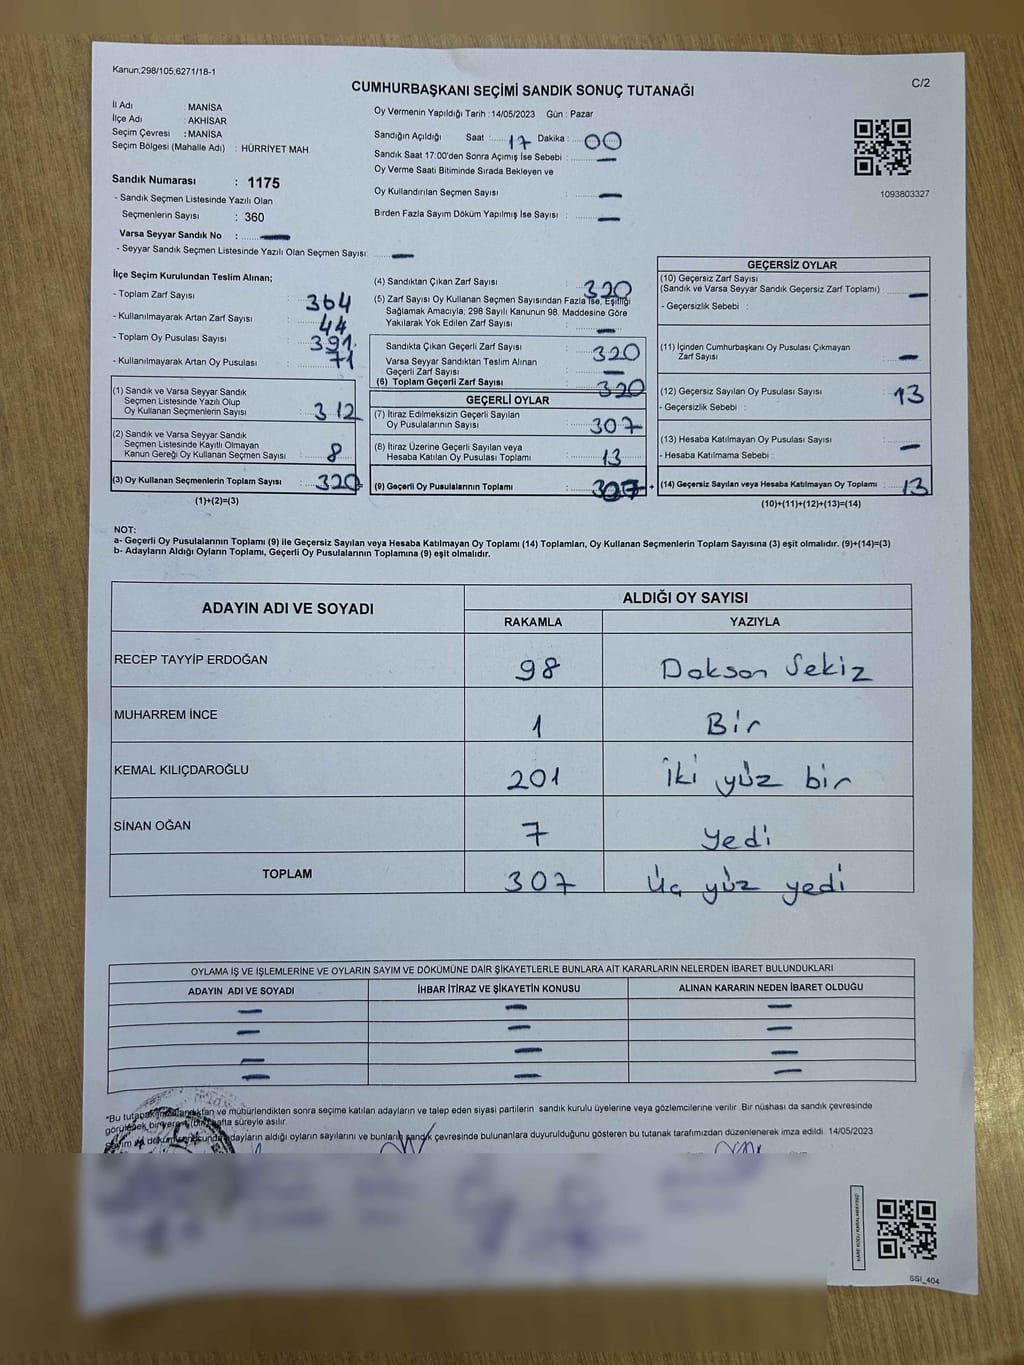 Kanun;298/105,6271/18-1
C/2
CUMHURBAŞKANI SEÇİMİ SANDIK SONUÇ TUTANAĞI
İl Adı : MANİSA
İlçe Adı : AKHİSAR
Seçim Çevresi : MANİSA
Seçim Bölgesi (Mahalle Adı) : HÜRRİYET MAH.
Oy Vermenin Yapıldığı Tarih : 14/05/2023 Gün : Pazar
Sandığın Açıldığı Saat : 17 Dakika : 00
Sandık Saat 17:00'den Sonra Açımış İse Sebebi : —
Oy Verme Saati Bitiminde Sırada Bekleyen ve
Oy Kullandırılan Seçmen Sayısı : —
Birden Fazla Sayım Döküm Yapılmış İse Sayısı : —
1093803327
Sandık Numarası : 1175
- Sandık Seçmen Listesinde Yazılı Olan
Seçmenlerin Sayısı : 360
Varsa Seyyar Sandık No : —
- Seyyar Sandık Seçmen Listesinde Yazılı Olan Seçmen Sayısı: —
İlçe Seçim Kurulundan Teslim Alınan;
- Toplam Zarf Sayısı : 364
- Kullanılmayarak Artan Zarf Sayısı : 44
- Toplam Oy Pusulası Sayısı : 391
- Kullanılmayarak Artan Oy Pusulası : 71
(1) Sandık ve Varsa Seyyar Sandık
Seçmen Listesinde Yazılı Olup
Oy Kullanan Seçmenlerin Sayısı : 312
(2) Sandık ve Varsa Seyyar Sandık
Seçmen Listesinde Kayıtlı Olmayan
Kanun Gereği Oy Kullanan Seçmen Sayısı : 8
(3) Oy Kullanan Seçmenlerin Toplam Sayısı : 320
(1)+(2)=(3)
(4) Sandıktan Çıkan Zarf Sayısı : 320
(5) Zarf Sayısı Oy Kullanan Seçmen Sayısından Fazla İse, Eşitliği
Sağlamak Amacıyla; 298 Sayılı Kanunun 98. Maddesine Göre
Yakılarak Yok Edilen Zarf Sayısı : —
Sandıkta Çıkan Geçerli Zarf Sayısı : 320
Varsa Seyyar Sandıktan Teslim Alınan
Geçerli Zarf Sayısı : —
(6) Toplam Geçerli Zarf Sayısı : 320
GEÇERLİ OYLAR
(7) İtiraz Edilmeksizin Geçerli Sayılan
Oy Pusulalarının Sayısı : 307
(8) İtiraz Üzerine Geçerli Sayılan veya
Hesaba Katılan Oy Pusulası Toplamı : 13
(9) Geçerli Oy Pusulalarının Toplamı : 307 +
GEÇERSİZ OYLAR
(10) Geçersiz Zarf Sayısı
(Sandık ve Varsa Seyyar Sandık Geçersiz Zarf Toplamı) : —
- Geçersizlik Sebebi :
(11) İçinden Cumhurbaşkanı Oy Pusulası Çıkmayan
Zarf Sayısı : —
(12) Geçersiz Sayılan Oy Pusulası Sayısı : 13
- Geçersizlik Sebebi :
(13) Hesaba Katılmayan Oy Pusulası Sayısı : —
- Hesaba Katılmama Sebebi :
(14) Geçersiz Sayılan veya Hesaba Katılmayan Oy Toplamı : 13
(10)+(11)+(12)+(13)=(14)
NOT:
a- Geçerli Oy Pusulalarının Toplamı (9) ile Geçersiz Sayılan veya Hesaba Katılmayan Oy Toplamı (14) Toplamları, Oy Kullanan Seçmenlerin Toplam Sayısına (3) eşit olmalıdır. (9)+(14)=(3)
b- Adayların Aldığı Oyların Toplamı, Geçerli Oy Pusulalarının Toplamına (9) eşit olmalıdır.
ADAYIN ADI VE SOYADI ALDIĞI OY SAYISI
RAKAMLA YAZIYLA
RECEP TAYYİP ERDOĞAN 98 Doksan Sekiz
MUHARREM İNCE 1 Bir
KEMAL KILIÇDAROĞLU 201 İki yüz bir
SİNAN OĞAN 7 Yedi
TOPLAM 307 Üç yüz yedi
OYLAMA İŞ VE İŞLEMLERİNE VE OYLARIN SAYIM VE DÖKÜMÜNE DAİR ŞİKAYETLERLE BUNLARA AİT KARARLARIN NELERDEN İBARET BULUNDUKLARI
ADAYIN ADI VE SOYADI İHBAR İTİRAZ VE ŞİKAYETİN KONUSU ALINAN KARARIN NEDEN İBARET OLDUĞU
— — —
— — —
— — —
— — —
*Bu tutanak imzalandıktan ve mühürlendikten sonra seçime katılan adayların ve talep eden siyasi partilerin sandık kurulu üyelerine veya gözlemcilerine verilir. Bir nüshası da sandık çevresinde
görülecek bir yere 1 (bir) hafta süreyle asılır.
Sayım ve dökümü sonucunda adayların aldığı oyların sayılarını ve bunların sandık çevresinde bulunanlara duyurulduğunu gösteren bu tutanak tarafımızdan düzenlenerek imza edildi. 14/05/2023
SSI_404